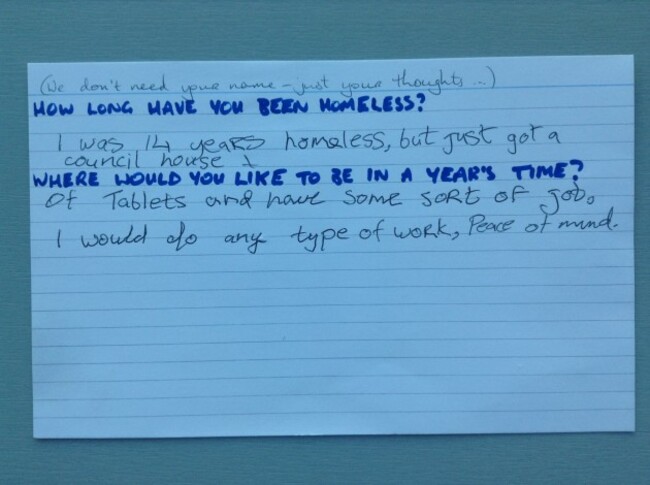 (We don't need your name - just your thoughts ...)
HOW LONG HAVE YOU BEEN HOMELESS?
I was 14 years homeless, but just got a
council house
WHERE WOULD YOU LIKE TO BE IN A YEAR'S TIME?
Of Tablets and have some sort of job.
I would do any type of work, Peace of mind.